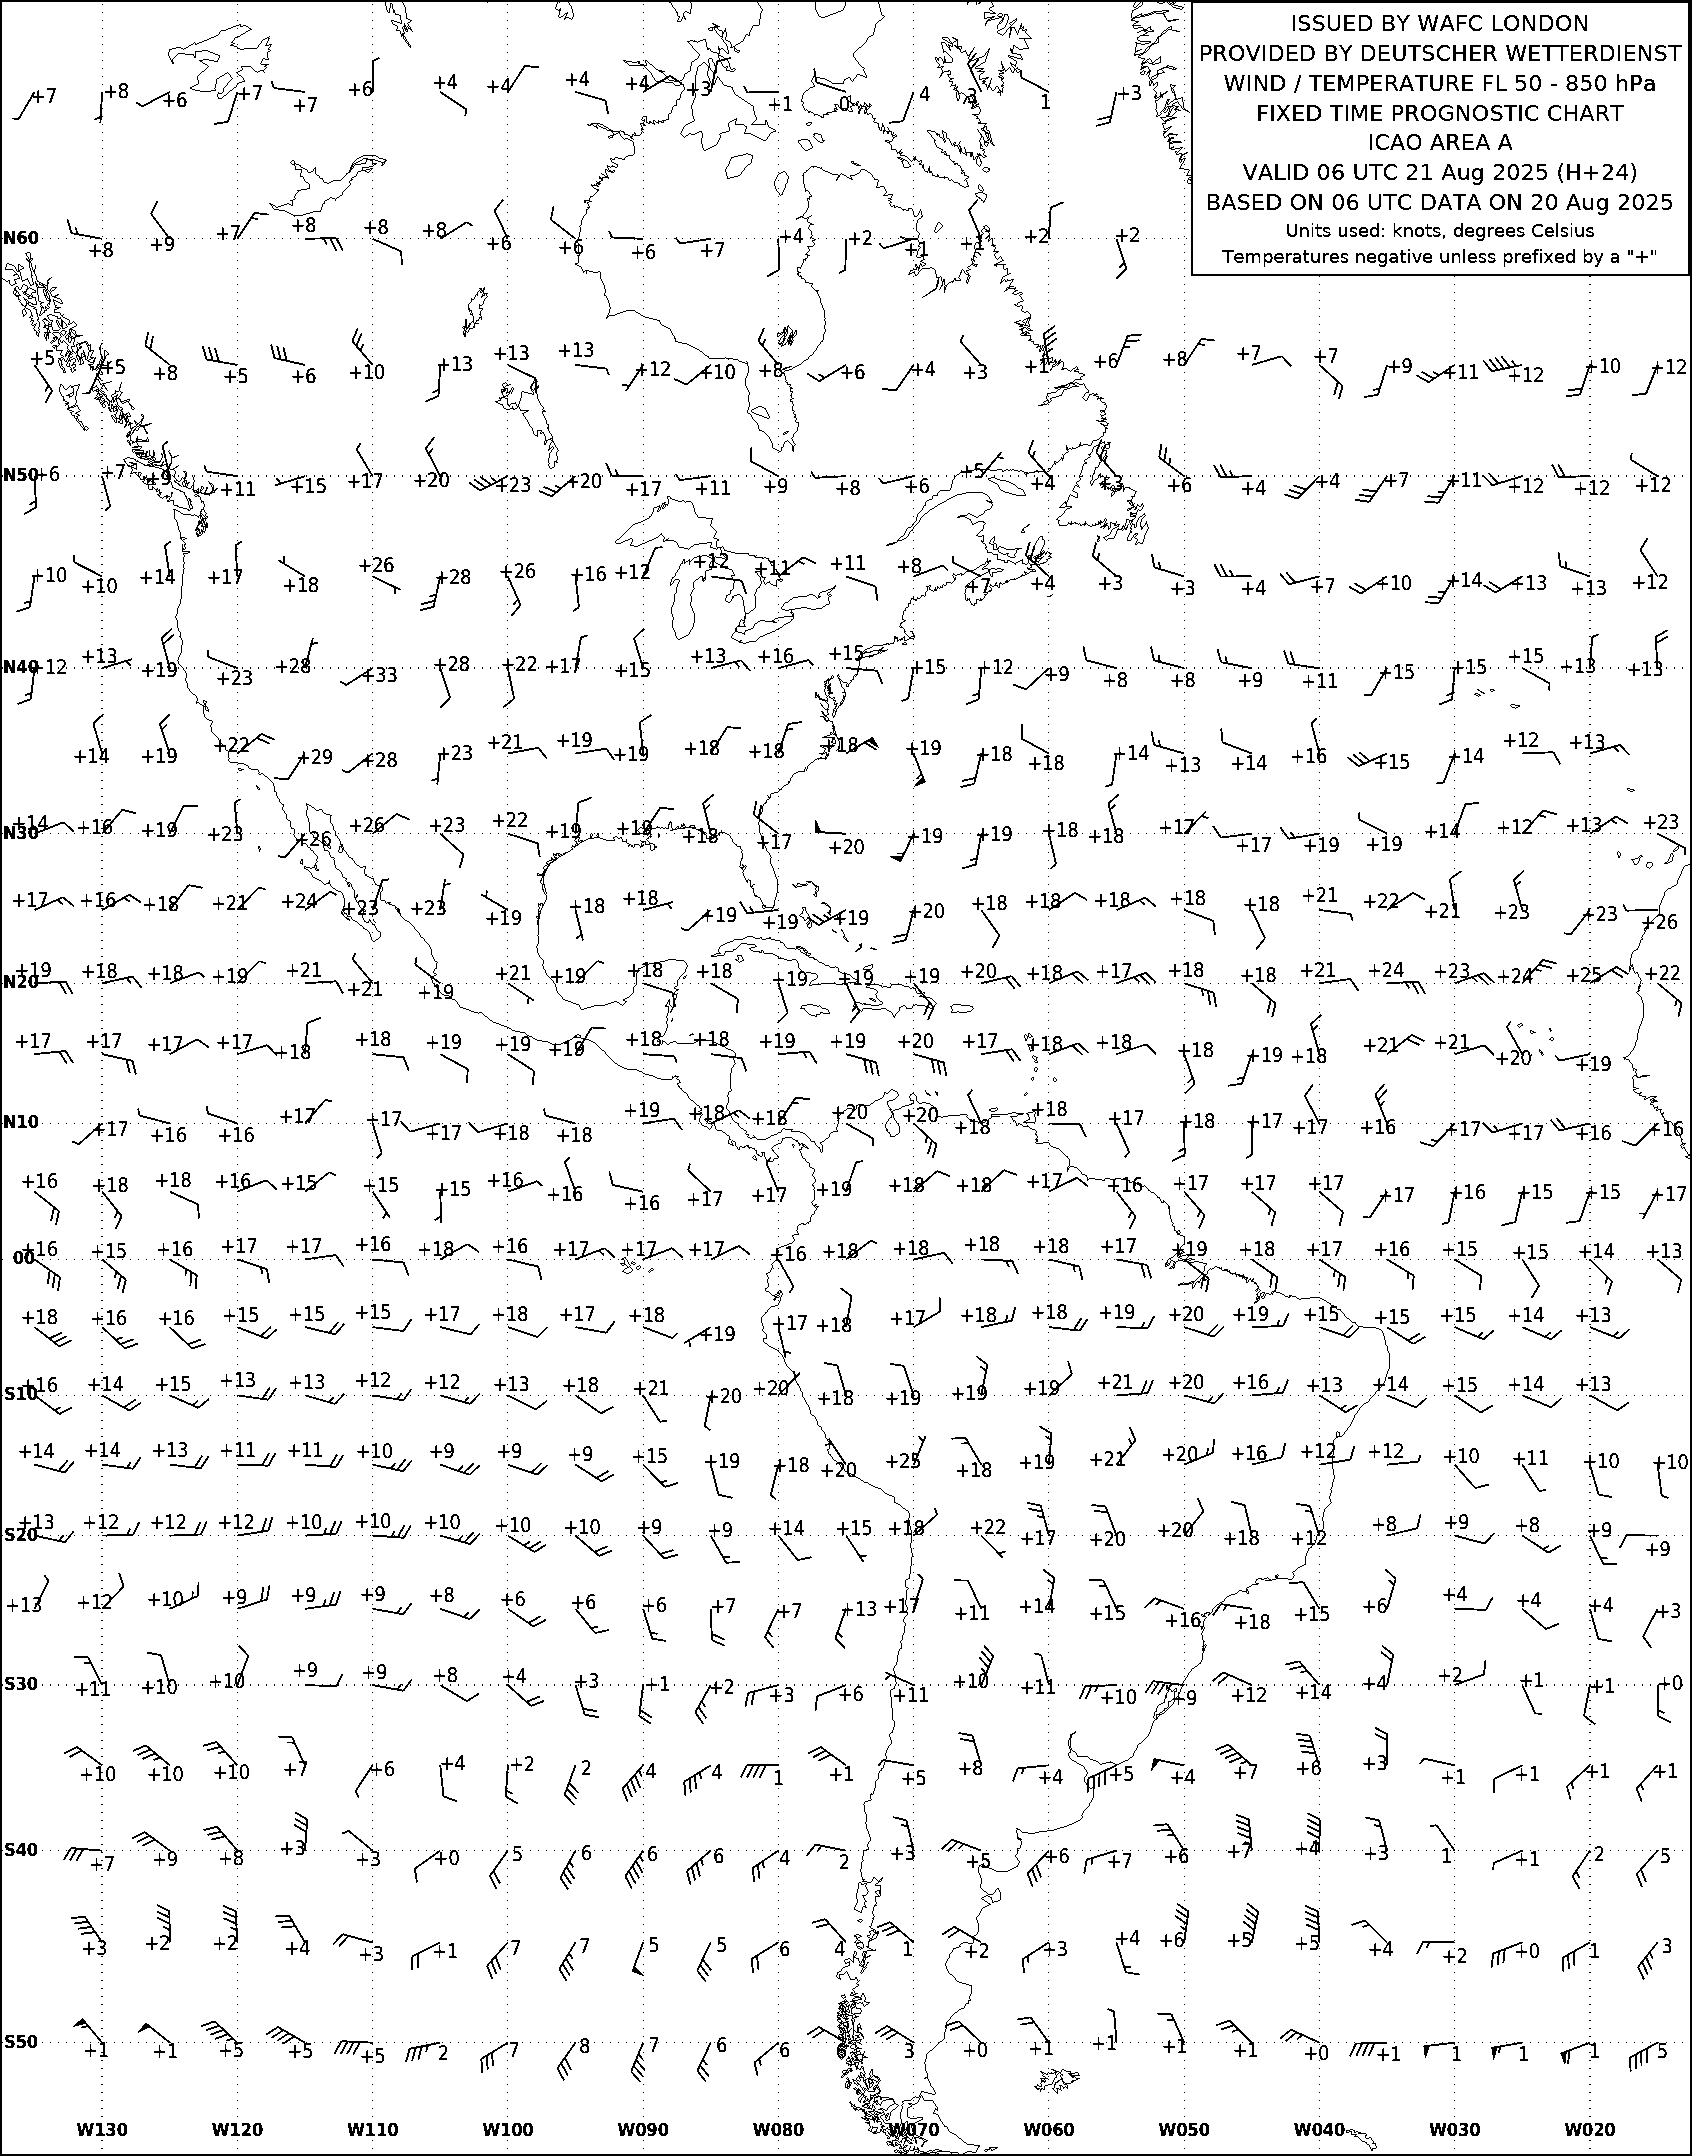 ISSUED BY WAFC LONDON
PROVIDED BY DEUTSCHER WETTERDIENST
WIND / TEMPERATURE FL 50 - 850 hPa
FIXED TIME PROGNOSTIC CHART
ICAO AREA A
VALID 06 UTC 21 Aug 2025 (H+24)
BASED ON 06 UTC DATA ON 20 Aug 2025
Units used: knots, degrees Celsius
Temperatures negative unless prefixed by a "+"
+7 +8 +6 +7 +7 +6 +4 +4 +4 +4 +3 +1 0 4 3 1 +3
N60 +8 +9 +7 +8 +8 +8 +6 +6 +6 +7 +4 +2 +1 +1 +2 +2
+5 +5 +8 +5 +6 +10 +13 +13 +13 +12 +10 +8 +6 +4 +3 +1 +6 +8 +7 +7 +9 +11 +12 +10 +12
N50 +6 +7 +9 +11 +15 +17 +20 +23 +20 +17 +11 +9 +8 +6 +5 +4 +3 +6 +4 +4 +7 +11 +12 +12 +12
+10 +10 +14 +17 +18 +26 +28 +26 +16 +12 +12 +11 +11 +8 +7 +4 +3 +3 +4 +7 +10 +14 +13 +13 +12
N40 +12 +13 +19 +23 +28 +33 +28 +22 +17 +15 +13 +16 +15 +15 +12 +9 +8 +8 +9 +11 +15 +15 +15 +13 +13
+14 +19 +22 +29 +28 +23 +21 +19 +19 +18 +18 +18 +19 +18 +18 +14 +13 +14 +16 +15 +14 +12 +13
N30 +14 +16 +19 +23 +26 +26 +23 +22 +19 +19 +18 +17 +20 +19 +19 +18 +18 +17 +17 +19 +19 +14 +12 +13 +23
+17 +16 +18 +21 +24 +23 +23 +19 +18 +18 +19 +19 +19 +20 +18 +18 +18 +18 +18 +21 +22 +21 +23 +23 +26
N20 +19 +18 +18 +19 +21 +21 +19 +21 +19 +18 +18 +19 +19 +19 +20 +18 +17 +18 +18 +21 +24 +23 +24 +25 +22
+17 +17 +17 +17 +18 +18 +19 +19 +19 +18 +18 +19 +19 +20 +17 +18 +18 +18 +19 +18 +21 +21 +20 +19
N10 +17 +16 +16 +17 +17 +17 +18 +18 +19 +18 +18 +20 +20 +18 +18 +17 +18 +17 +17 +16 +17 +17 +16 +16
+16 +18 +18 +16 +15 +15 +15 +16 +16 +16 +17 +17 +19 +18 +18 +17 +16 +17 +17 +17 +17 +16 +15 +15 +17
00 +16 +15 +16 +17 +17 +16 +18 +16 +17 +17 +17 +16 +18 +18 +18 +18 +17 +19 +18 +17 +16 +15 +15 +14 +13
+18 +16 +16 +15 +15 +15 +17 +18 +17 +18 +19 +17 +18 +17 +18 +18 +19 +20 +19 +15 +15 +15 +14 +13
S10 +16 +14 +15 +13 +13 +12 +12 +13 +18 +21 +20 +20 +18 +19 +19 +19 +21 +20 +16 +13 +14 +15 +14 +13
+14 +14 +13 +11 +11 +10 +9 +9 +9 +15 +19 +18 +20 +25 +18 +19 +21 +20 +16 +12 +12 +10 +11 +10 +10
S20 +13 +12 +12 +12 +10 +10 +10 +10 +10 +9 +9 +14 +15 +18 +22 +17 +20 +20 +18 +12 +8 +9 +8 +9 +9
+13 +12 +10 +9 +9 +9 +8 +6 +6 +6 +7 +7 +13 +17 +11 +14 +15 +16 +18 +15 +6 +4 +4 +4 +3
S30 +11 +10 +10 +9 +9 +8 +4 +3 +1 +2 +3 +6 +11 +10 +11 +10 +9 +12 +14 +4 +2 +1 +1 +0
+10 +10 +10 +7 +6 +4 +2 2 4 4 1 +1 +5 +8 +4 +5 +4 +7 +6 +3 +1 +1 +1 +1
S40 +7 +9 +8 +3 +3 +0 5 6 6 6 4 2 +3 +5 +6 +7 +6 +7 +4 +3 1 +1 2 5
+3 +2 +2 +4 +3 +1 7 7 5 5 6 4 1 +2 +3 +4 +6 +5 +5 +4 +2 +0 1 3
S50 +1 +1 +5 +5 +5 2 7 8 7 6 6 3 +0 +1 +1 +1 +1 +0 +1 1 1 1 5
W130 W120 W110 W100 W090 W080 W070 W060 W050 W040 W030 W020